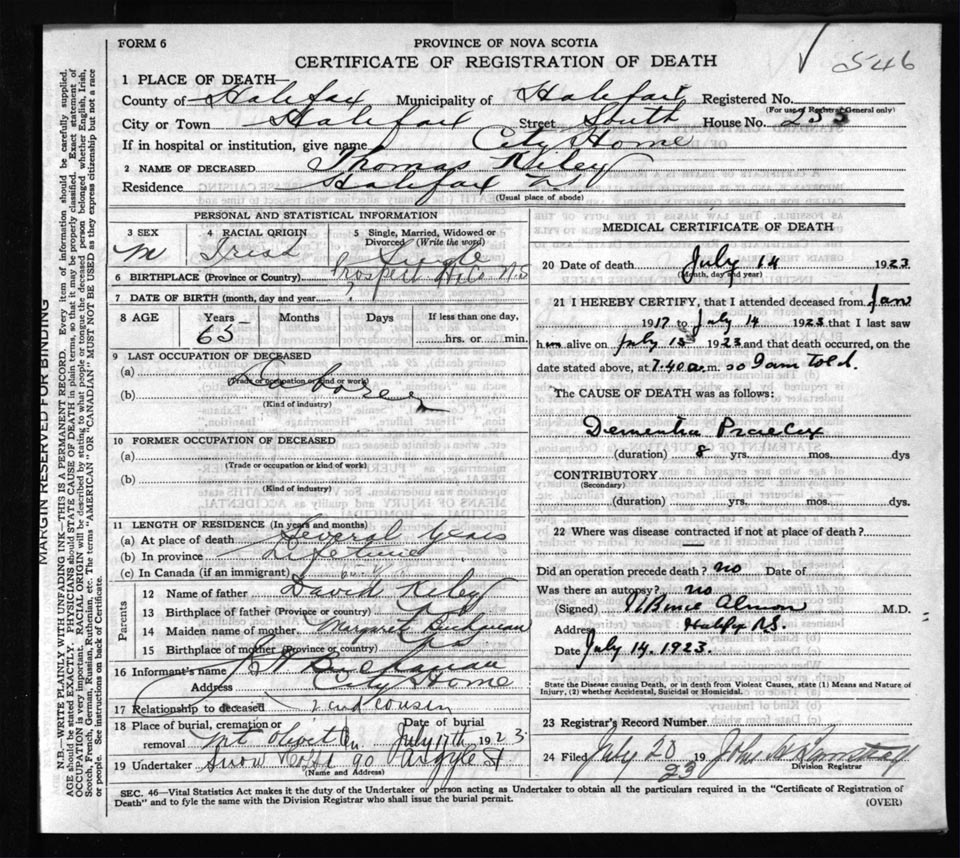 FORM 6
PROVINCE OF NOVA SCOTIA
CERTIFICATE OF REGISTRATION OF DEATH
√ 546
1 PLACE OF DEATH—
County of Halifax Municipality of Halifax Registered No.
(For use of Registrar General only)
City or Town Halifax Street South House No. 235
If in hospital or institution, give name City Home
2 NAME OF DECEASED Thomas Riley
Residence Halifax N.S.
(Usual place of abode)
PERSONAL AND STATISTICAL INFORMATION
3 SEX M
4 RACIAL ORIGIN Irish
5 Single, Married, Widowed or Divorced (Write the word) Single
6 BIRTHPLACE (Province or Country) Prospect Hx Co N.S.
7 DATE OF BIRTH (month, day and year) ?
8 AGE Years Months Days If less than one day,
65 hrs. or min.
9 LAST OCCUPATION OF DECEASED
(a) Laborer
(Trade or occupation or kind of work)
(b)
(Kind of industry)
10 FORMER OCCUPATION OF DECEASED
(a)
(Trade or occupation or kind of work)
(b)
(Kind of industry)
11 LENGTH OF RESIDENCE (In years and months)
(a) At place of death Several years
(b) In province Lifetime
(c) In Canada (if an immigrant)
Parents
12 Name of father David Riley
13 Birthplace of father (Province or country) N.S.
14 Maiden name of mother Margaret Buchanan
15 Birthplace of mother (Province or country) N.S.
16 Informant's name Buchanan
Address City Home
17 Relationship to deceased 2nd cousin
18 Place of burial, cremation or removal Mt Olivet Date of burial July 17th 1923
19 Undertaker Snow & Co Ltd 90 Argyle St
(Name and Address)
MEDICAL CERTIFICATE OF DEATH
20 Date of death July 14 1923
(Month, day and year)
21 I HEREBY CERTIFY, that I attended deceased from Jan
1917 to July 14 1923 that I last saw
him alive on July 13th 1923 and that death occurred, on the
date stated above, at 7.40 a.m. so I am told.
The CAUSE OF DEATH was as follows:
Dementia Praecox
(duration) 8 yrs. mos. dys
CONTRIBUTORY
(Secondary)
(duration) yrs. mos. dys.
22 Where was disease contracted if not at place of death?
Did an operation precede death? no Date of
Was there an autopsy? no
(Signed) W Bruce Almon M.D.
Address Halifax N.S.
Date July 14. 1923.
State the Disease causing Death, or in death from Violent Causes, state (1) Means and Nature of
Injury, (2) whether Accidental, Suicidal or Homicidal.
23 Registrar's Record Number
24 Filed July 20 1923 John
Division Registrar
SEC. 46—Vital Statistics Act makes it the duty of the Undertaker or person acting as Undertaker to obtain all the particulars required in the "Certificate of Registration of
Death" and to fyle the same with the Division Registrar who shall issue the burial permit.
(OVER)
MARGIN RESERVED FOR BINDING
N.B.—WRITE PLAINLY WITH UNFADING INK—THIS IS A PERMANENT RECORD. Every item of information should be carefully supplied.
AGE should be stated EXACTLY. PHYSICIANS should STATE CAUSE OF DEATH in plain terms, so that it may be properly classified. Exact statement of
OCCUPATION is very important. RACIAL ORIGIN will be described by stating to what people or tongue the deceased person belonged whether English, Irish,
Scotch, French, German, Russian, Ruthenian, etc. The terms "AMERICAN" OR "CANADIAN" MUST NOT BE USED as they express citizenship but not a race
or people. See instructions on back of Certificate.